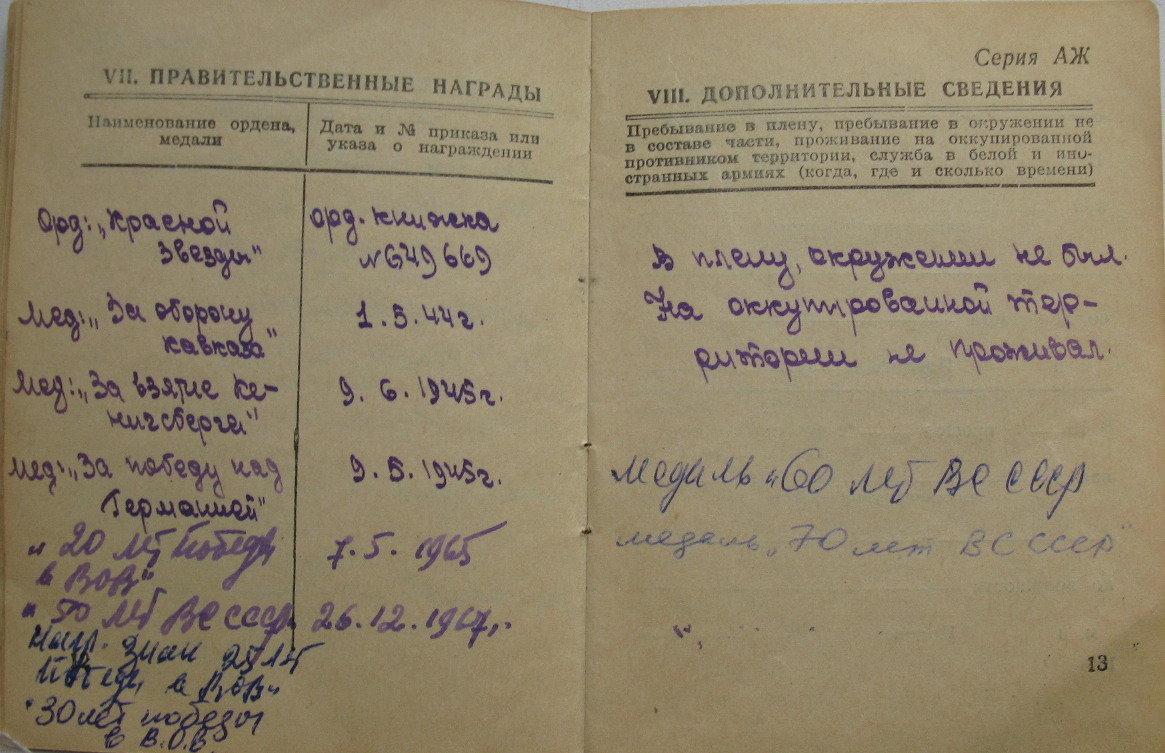 VII. ПРАВИТЕЛЬСТВЕННЫЕ НАГРАДЫ
Наименование ордена,
медали
Дата и № приказа или
указа о награждении
Орд: „Красной
Звезды"
орд. книжка
№ 649669
Мед: „За оборону
кавказа"
1.5.44г.
Мед: „За взятие Ке-
нигсберга"
9.6.1945г.
Мед: „За победу над
Германией"
9.5.1945г.
„20 лет Победы
в ВОВ"
7.5.1965
„50 лет ВС СССР
26.12.1967г.
Нагр. знак 25 лет
Победы в ВОВ"
"30 лет победы
в В.О.В
Серия АЖ
VIII. ДОПОЛНИТЕЛЬНЫЕ СВЕДЕНИЯ
Пребывание в плену, пребывание в окружении не
в составе части, проживание на оккупированной
противником территории, служба в белой и ино-
странных армиях (когда, где и сколько времени)
В плену, окружении не был.
На оккупированной тер-
ритории не проживал.
медаль „60 лет ВС СССР
медаль „70 лет ВС СССР"
13